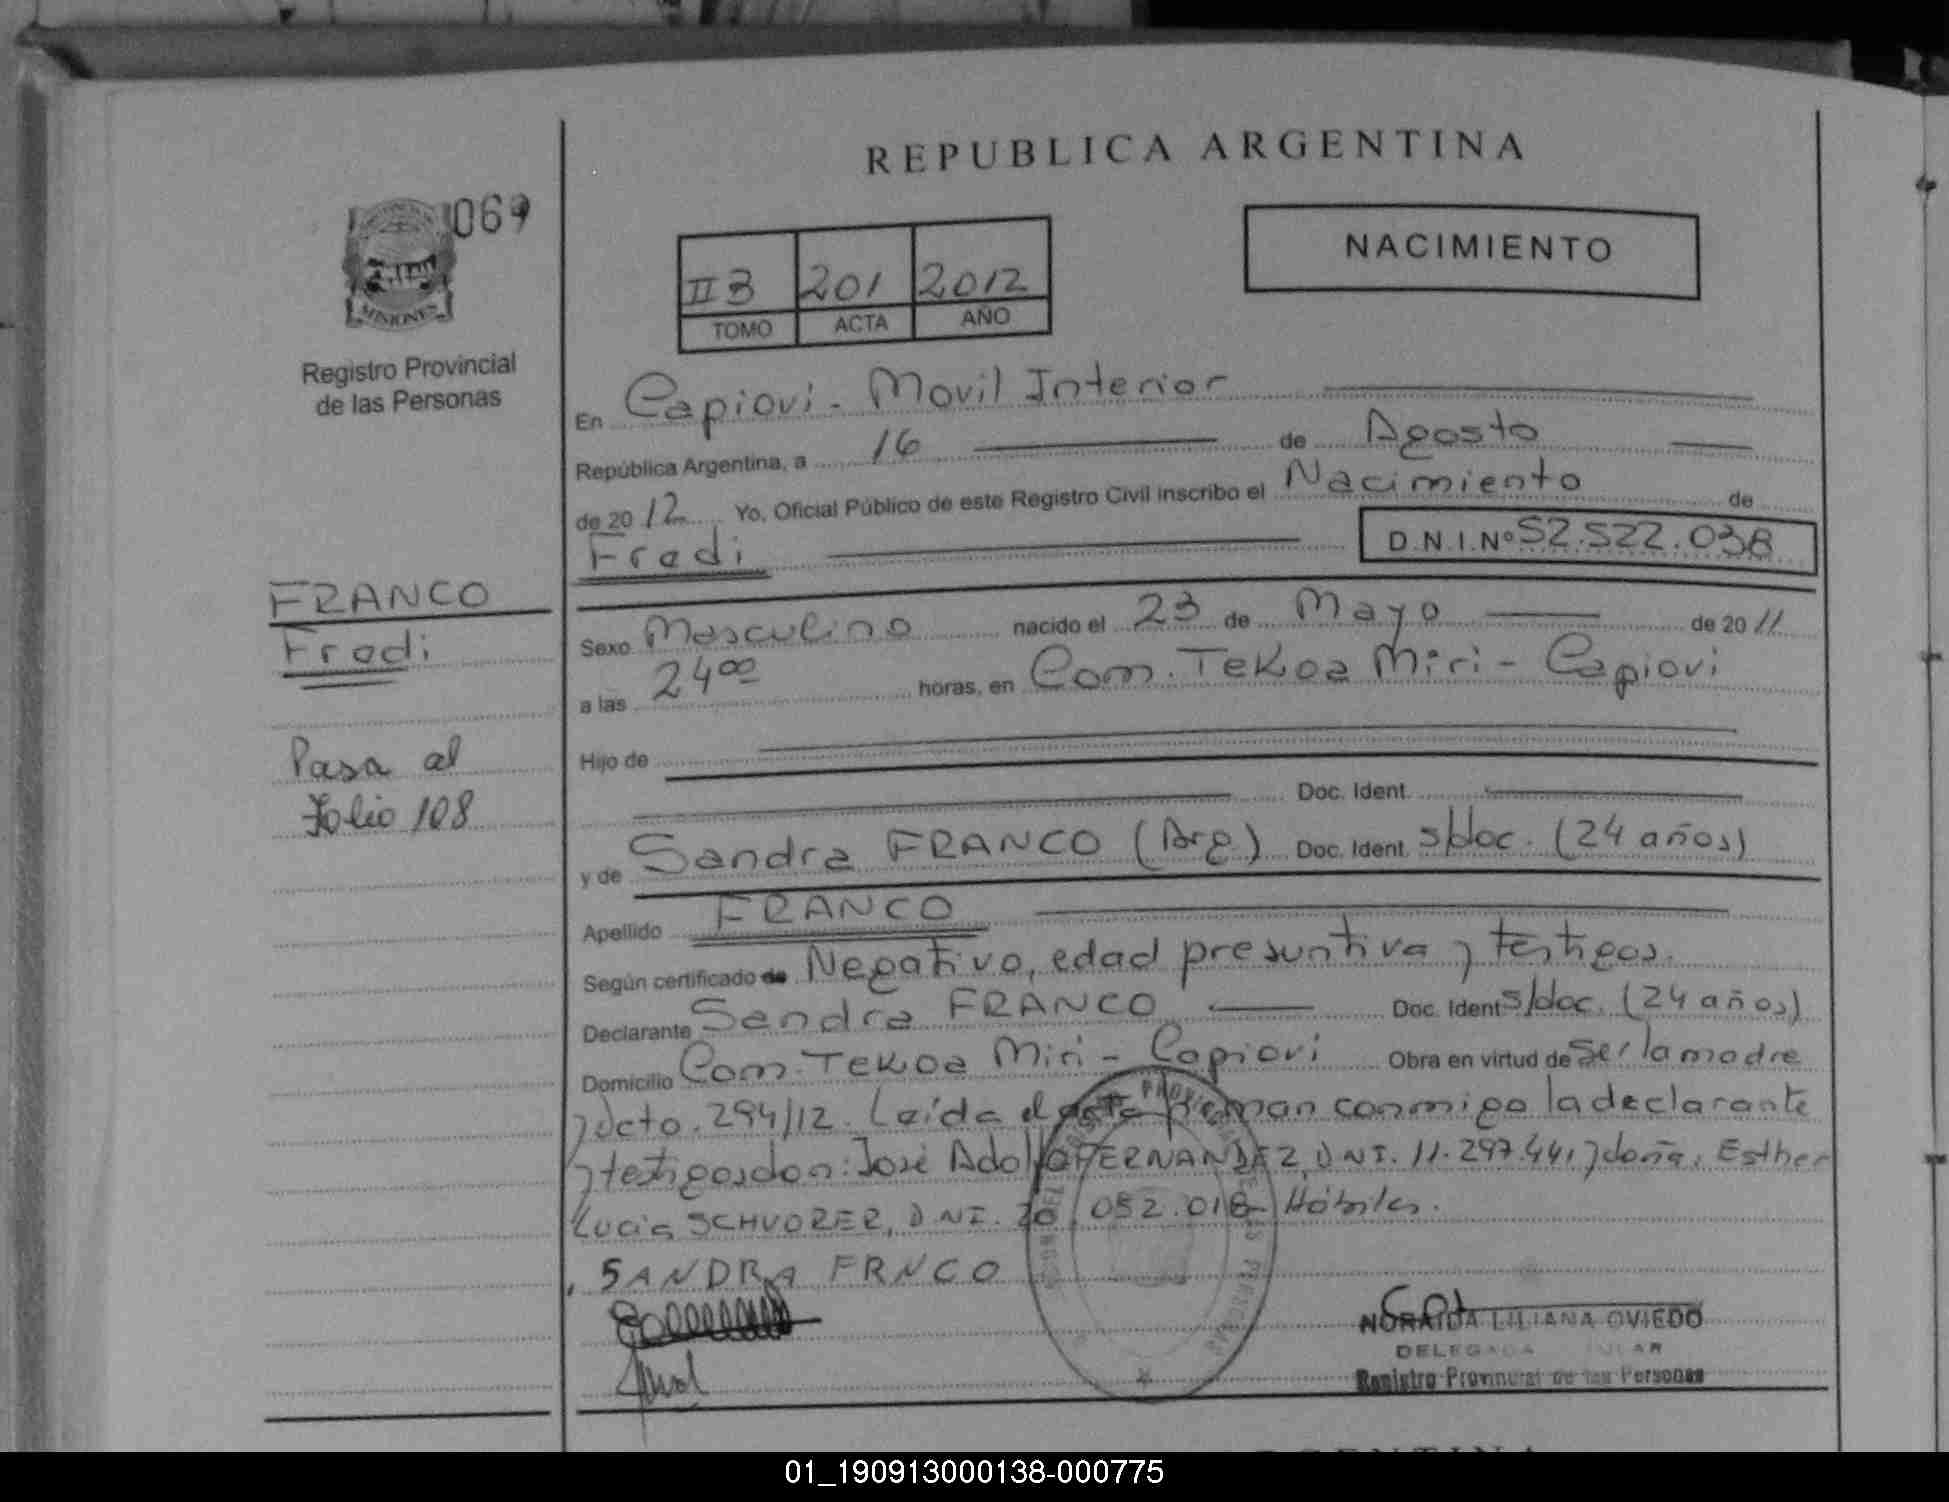 REPUBLICA ARGENTINA
069
MISIONES
Registro Provincial
de las Personas
II B 201 2012
TOMO ACTA AÑO
NACIMIENTO
En Capiovi - Movil Interior
República Argentina, a 16 de Agosto
de 20 12 Yo, Oficial Público de este Registro Civil inscribo el Nacimiento de
Fredi D.N.I.Nº 52.522.038
FRANCO
Fredi
Pasa al
Folio 108
Sexo Masculino nacido el 23 de Mayo de 20 11
a las 24 00 horas, en Com. Tekoa Miri - Capiovi
Hijo de
Doc. Ident.
y de Sandra FRANCO (Arg.) Doc. Ident. s/doc. (24 años)
Apellido FRANCO
Según certificado de Negativo, edad presuntiva y testigos.
Declarante Sandra FRANCO Doc. Ident s/doc. (24 años)
Domicilio Com. Tekoa Miri - Capiovi Obra en virtud de ser la madre
y Dcto. 294/12. Leída el acta firman conmigo la declarante
y testigos don: José Adolfo FERNANDEZ, DNI. 11.297.441 y doña: Esther
Lucia SCHVORER, DNI. 20.052.018 Hábiles.
SANDRA FRNCO
NORAIDA LILIANA OVIEDO
DELEGADA
Registro Provincial de las Personas
01_190913000138-000775